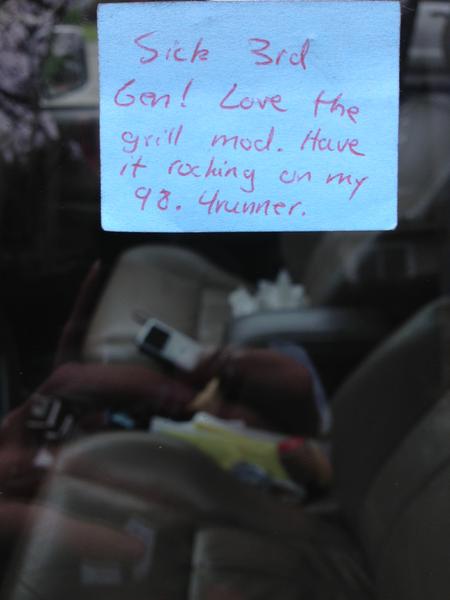 Sick 3rd
Gen! Love the
grill mod. Have
it rocking on my
98. 4runner.